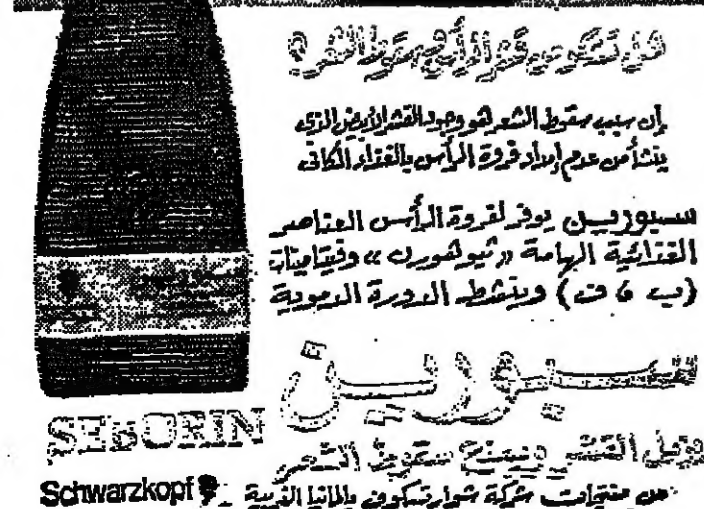 هل تشكو من قشر الرأس وسقوط الشعر؟
إن سبب سقوط الشعر هو وجود القشر الأبيض الذى
ينشأ من عدم إمداد فروة الرأس بالغذاء الكافى
سيورين يوفر لفروة الرأس العناصر
الغذائية الهامة « ثيوهورن » وفيتامينات
(ب ، ف) وينشط الدورة الدموية
سبورين
يزيل القشر ويمنع سقوط الشعر
SEBORIN
من منتجات شركة شوارتسكوف بالمانيا الغربية
Schwarzkopf